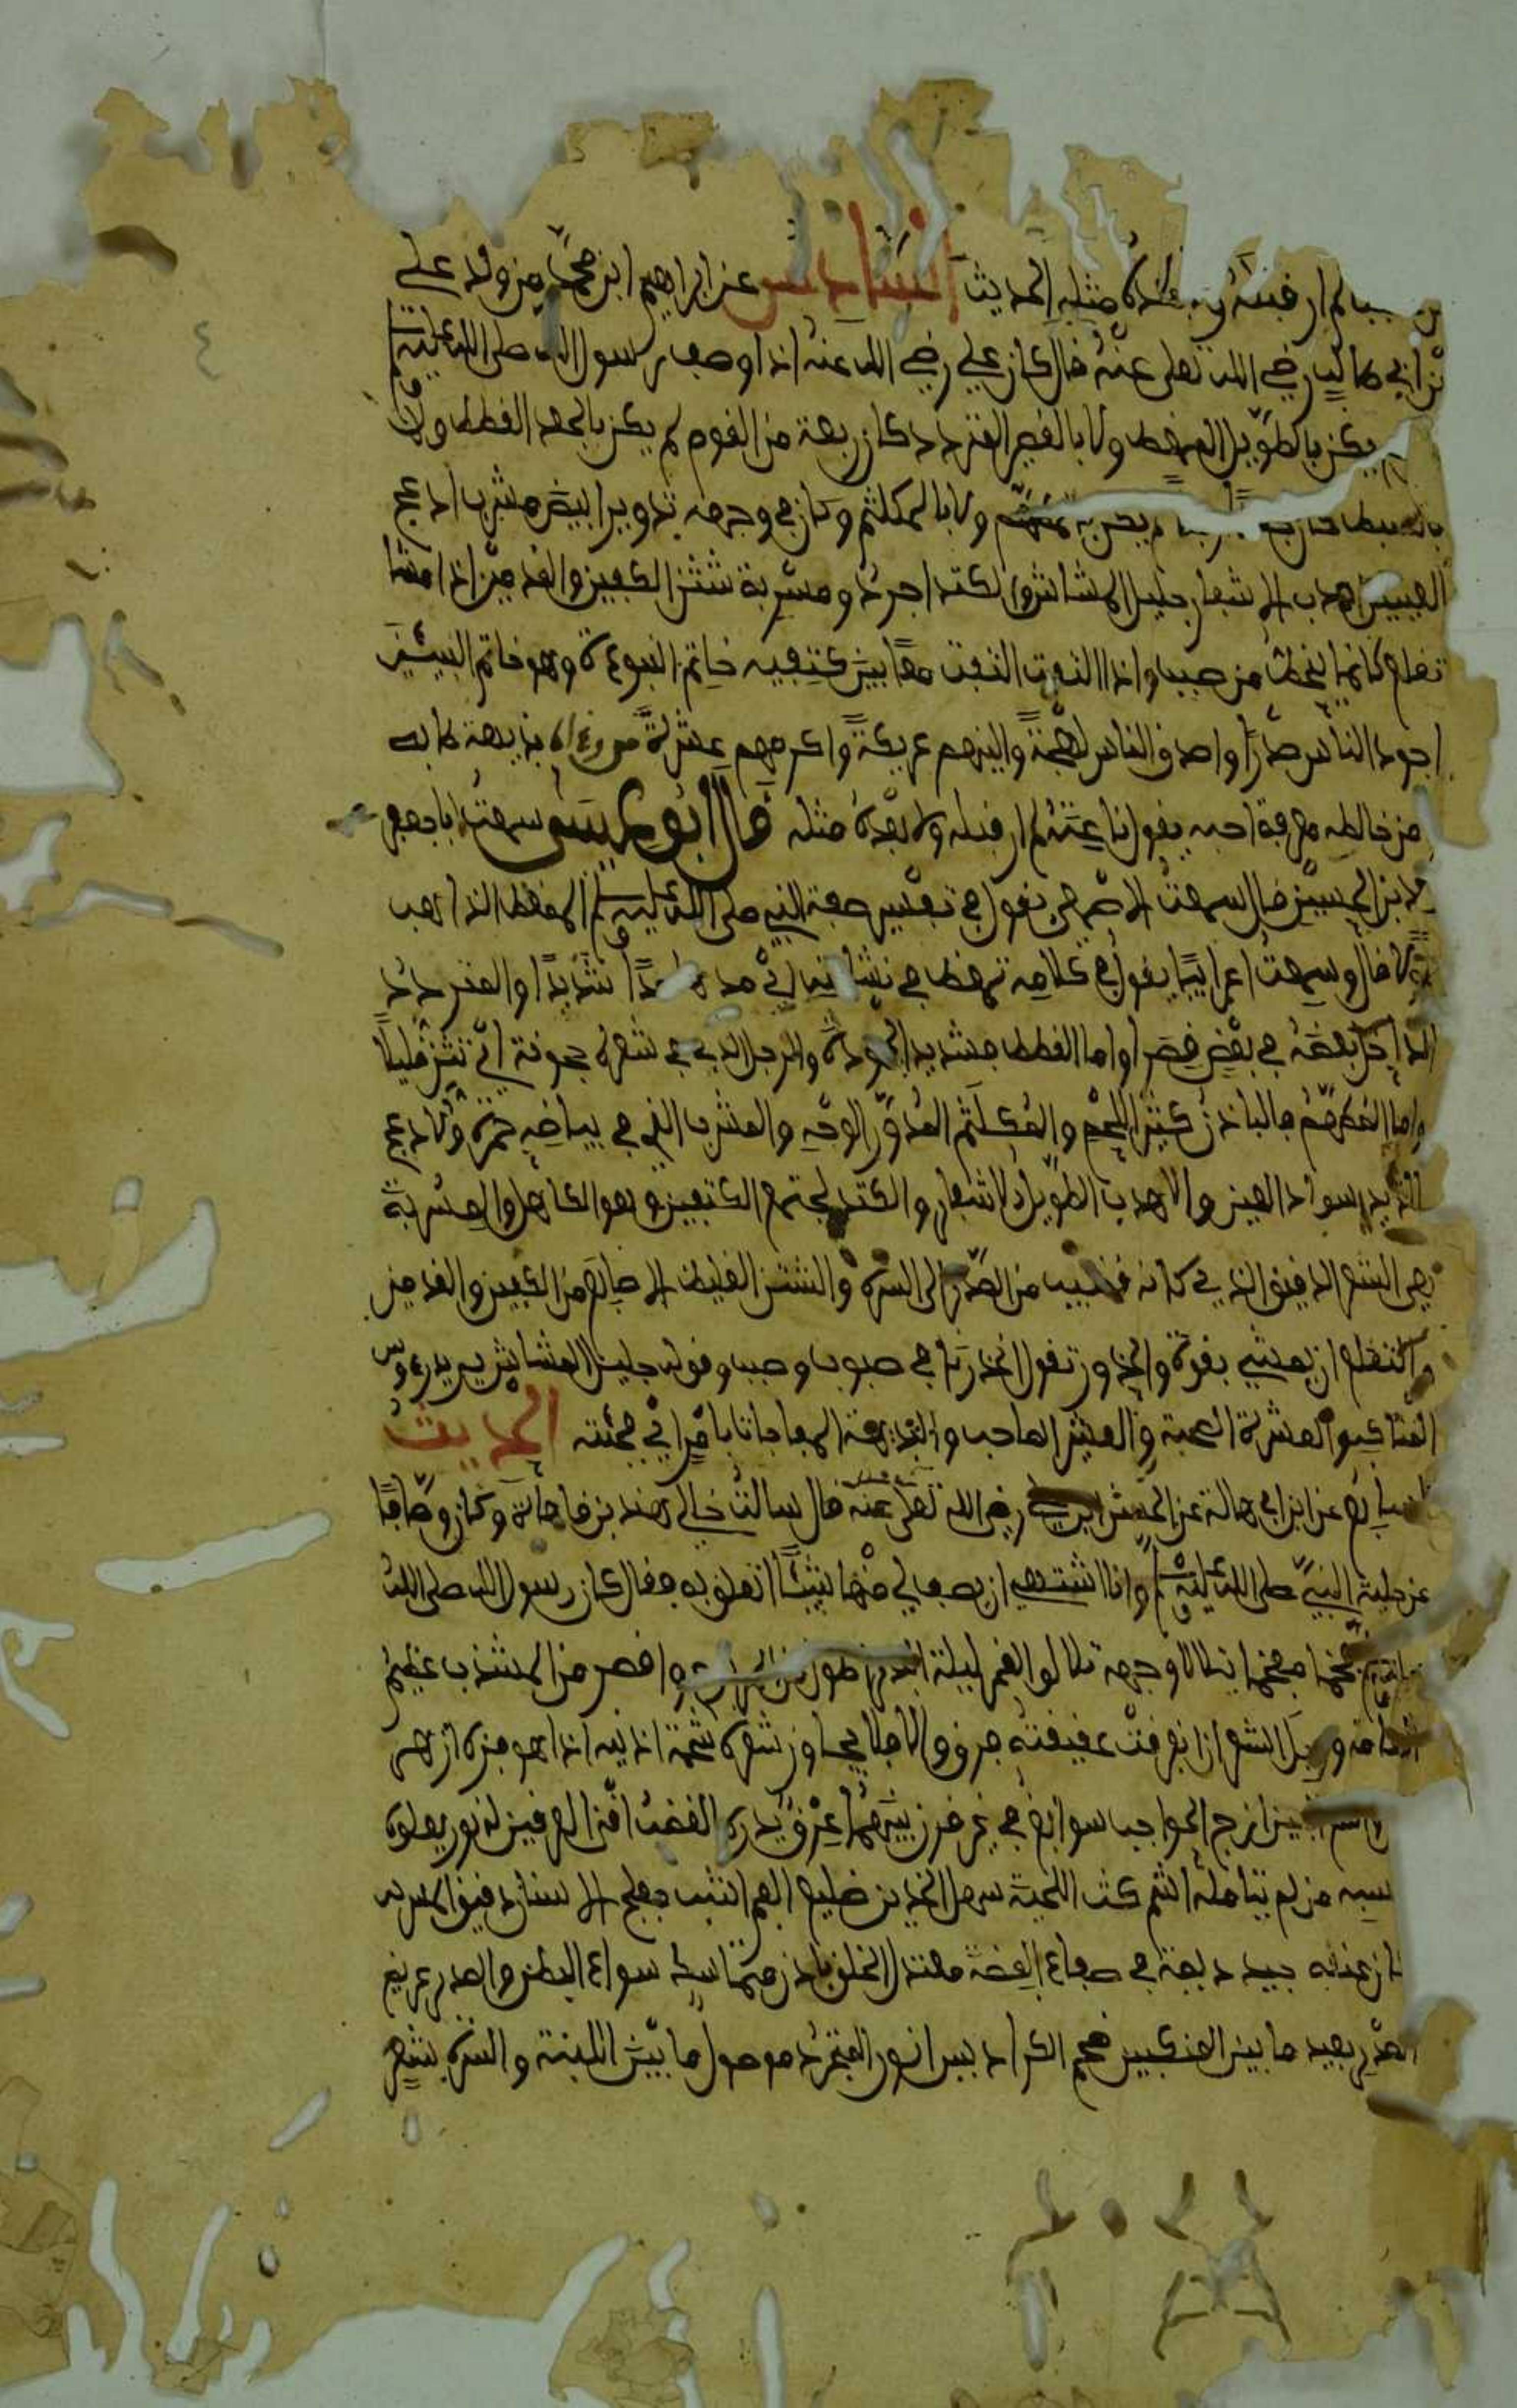 لم ار قبله ولا بعده مثله الحديث السادس عن ابراهيم ابن محمد من ولد علي
بن ابي طالب رضي الله تعلى عنه قال كان علي رضي الله عنه اذا وصف رسول الله صلى الله عليه وسلم
يكن بالطويل الممغط ولا بالقصير المتردد كان ربعة من القوم لم يكن بالجعد القطط ولا
بالسبط كان جعدا رجلا لم يكن بالمطهم ولا بالمكلثم وكان في وجهه تدويرا ابيض مشرب ادعج
العينين اهدب الاشفار جليل المشاش والكتد اجرد ومسربة شثن الكفين والقدمين اذا مشا
تقلع كانما ينحط من صبب واذا التفت التفت معا بين كتفيه خاتم النبوءة وهو خاتم النبيئين
اجود الناس صدرا واصدق الناس لهجة والينهم عريكة واكرمهم عشرة من رءاه بديهة هابه
من خالطه معرفة احبه يقول ناعته لم ار قبله ولا بعده مثله قال ابو عيسى سمعت ابا جعفر
محمد بن الحسين قال سمعت الاصمعي يقول في تفسير صفة النبي صلى الله عليه وسلم الممغط الذاهب
طولا قال وسمعت اعرابيا يقول في كلامه تمغط في نشابته اي مدها مدا شديدا والمتردد
الداخل بعضه في بعض قصرا واما القطط فشديد الجعودة والرجل الذي في شعره حجونة اي تثن قليلا
واما المطهم فالبادن كثير اللحم والمكلثم المدور الوجه والمشرب الذي في بياضه حمرة والادعج
الشديد سواد العين والاهدب الطويل الاشفار والكتد مجتمع الكتفين وهو الكاهل والمسربة
هي الشعر الدقيق الذي كانه قضيب من الصدر الى السرة والشثن الغليظ الاصابع من الكفين والقدمين
والتقلع ان يمشي بقوة والحدور تقول انحدرنا في صبوب وصبب وقوله جليل المشاش يريد رءوس
المناكب والعشرة الصحبة والعشير الصاحب والبديهة المفاجاة بامر اي فجئته الحديث
السابع عن ابن ابي هالة عن الحسن رضي الله تعلى عنه قال سالت خالي هند بن هالة وكان وصافا
عن حلية النبي صلى الله عليه وسلم وانا اشتهي ان يصف لي منها شيئا اتعلق به فقال كان رسول الله صلى الله
فخما مفخما يتلالا وجهه تلالو القمر ليلة البدر اطول من المربوع واقصر من المشذب عظيم
الهامة رجل الشعر ان انفرقت عقيقته فرق والا فلا يجاوز شعره شحمة اذنيه اذا هو وفره ازهر
واسع الجبين ازج الحواجب سوابغ في غير قرن بينهما عرق يدره الغضب اقنى العرنين له نور يعلوه
يحسبه من لم يتامله اشم كث اللحية سهل الخدين ضليع الفم اشنب مفلج الاسنان دقيق المسربة
كان عنقه جيد دمية في صفاء الفضة معتدل الخلق بادن متماسك سواء البطن والصدر عريض
الصدر بعيد ما بين المنكبين ضخم الكراديس انور المتجرد موصول ما بين اللبة والسرة بشعر